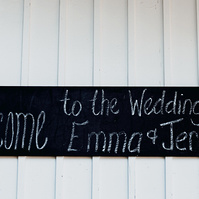 come to the Wedding
Emma & Jer